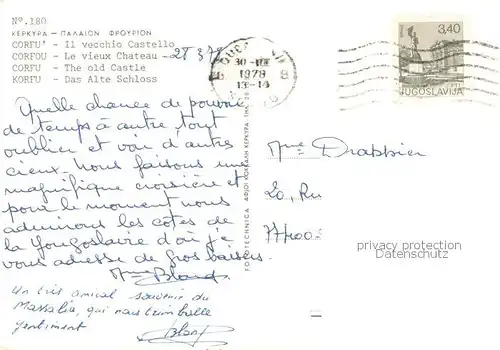 Nº. 180
ΚΕΡΚΥΡΑ - ΠΑΛΑΙΟΝ ΦΡΟΥΡΙΟΝ
CORFU' - Il vecchio Castello
CORFOU - Le vieux Chateau
CORFU - The old Castle
KORFU - Das Alte Schloss
30-III
1978
13-14
3,40
JUGOSLAVIJA
Quelle chance de pouvoir
de temps à autre, tout
oublier et voir d'autres
cieux. Nous faisons une
magnifique croisière et
pour le moment nous
admirons les côtes de
la Yougoslavie d'où je
vous adresse de gros baisers.
Mme Bland
Un très amical souvenir du
Massalia, qui nous trimballe
gentiment
Mme Drappier
20, Ru
FOTOTECHNICA
privacy protection
Datenschutz